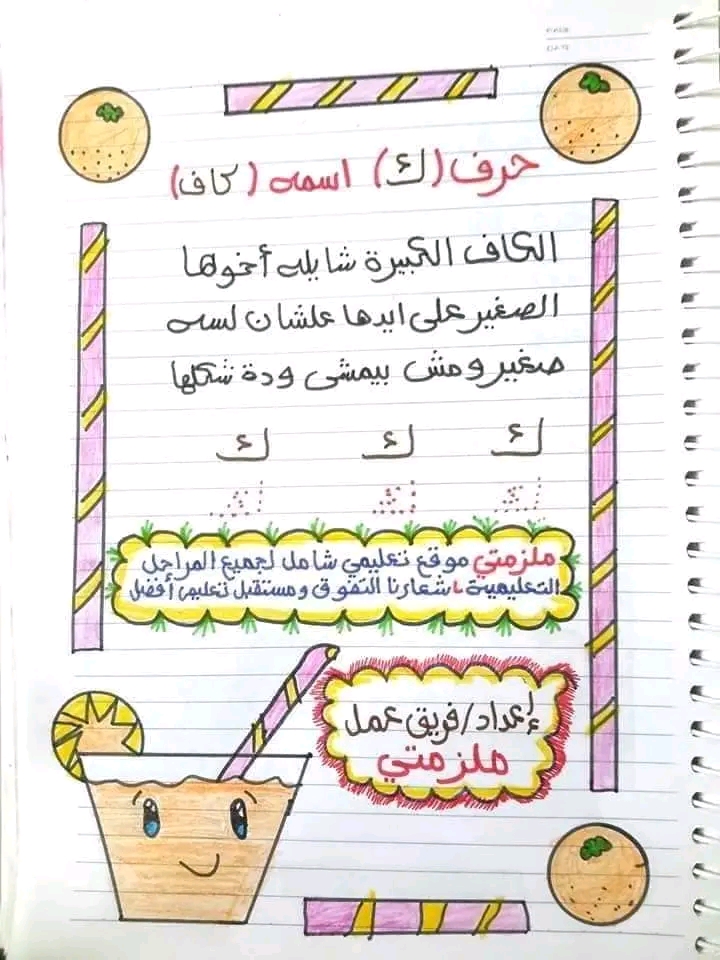 حرف (ك) اسمه (كاف)
الكاف الكبيرة شايله أخوها
الصغير على ايدها علشان لسه
صغير ومش بيمشى ودة شكلها
ك ك ك
ك ك ك
ملزمتي موقع تعليمي شامل لجميع المراحل
التعليمية شعارنا التفوق ومستقبل تعليمى أفضل
إعداد/فريق عمل
ملزمتي